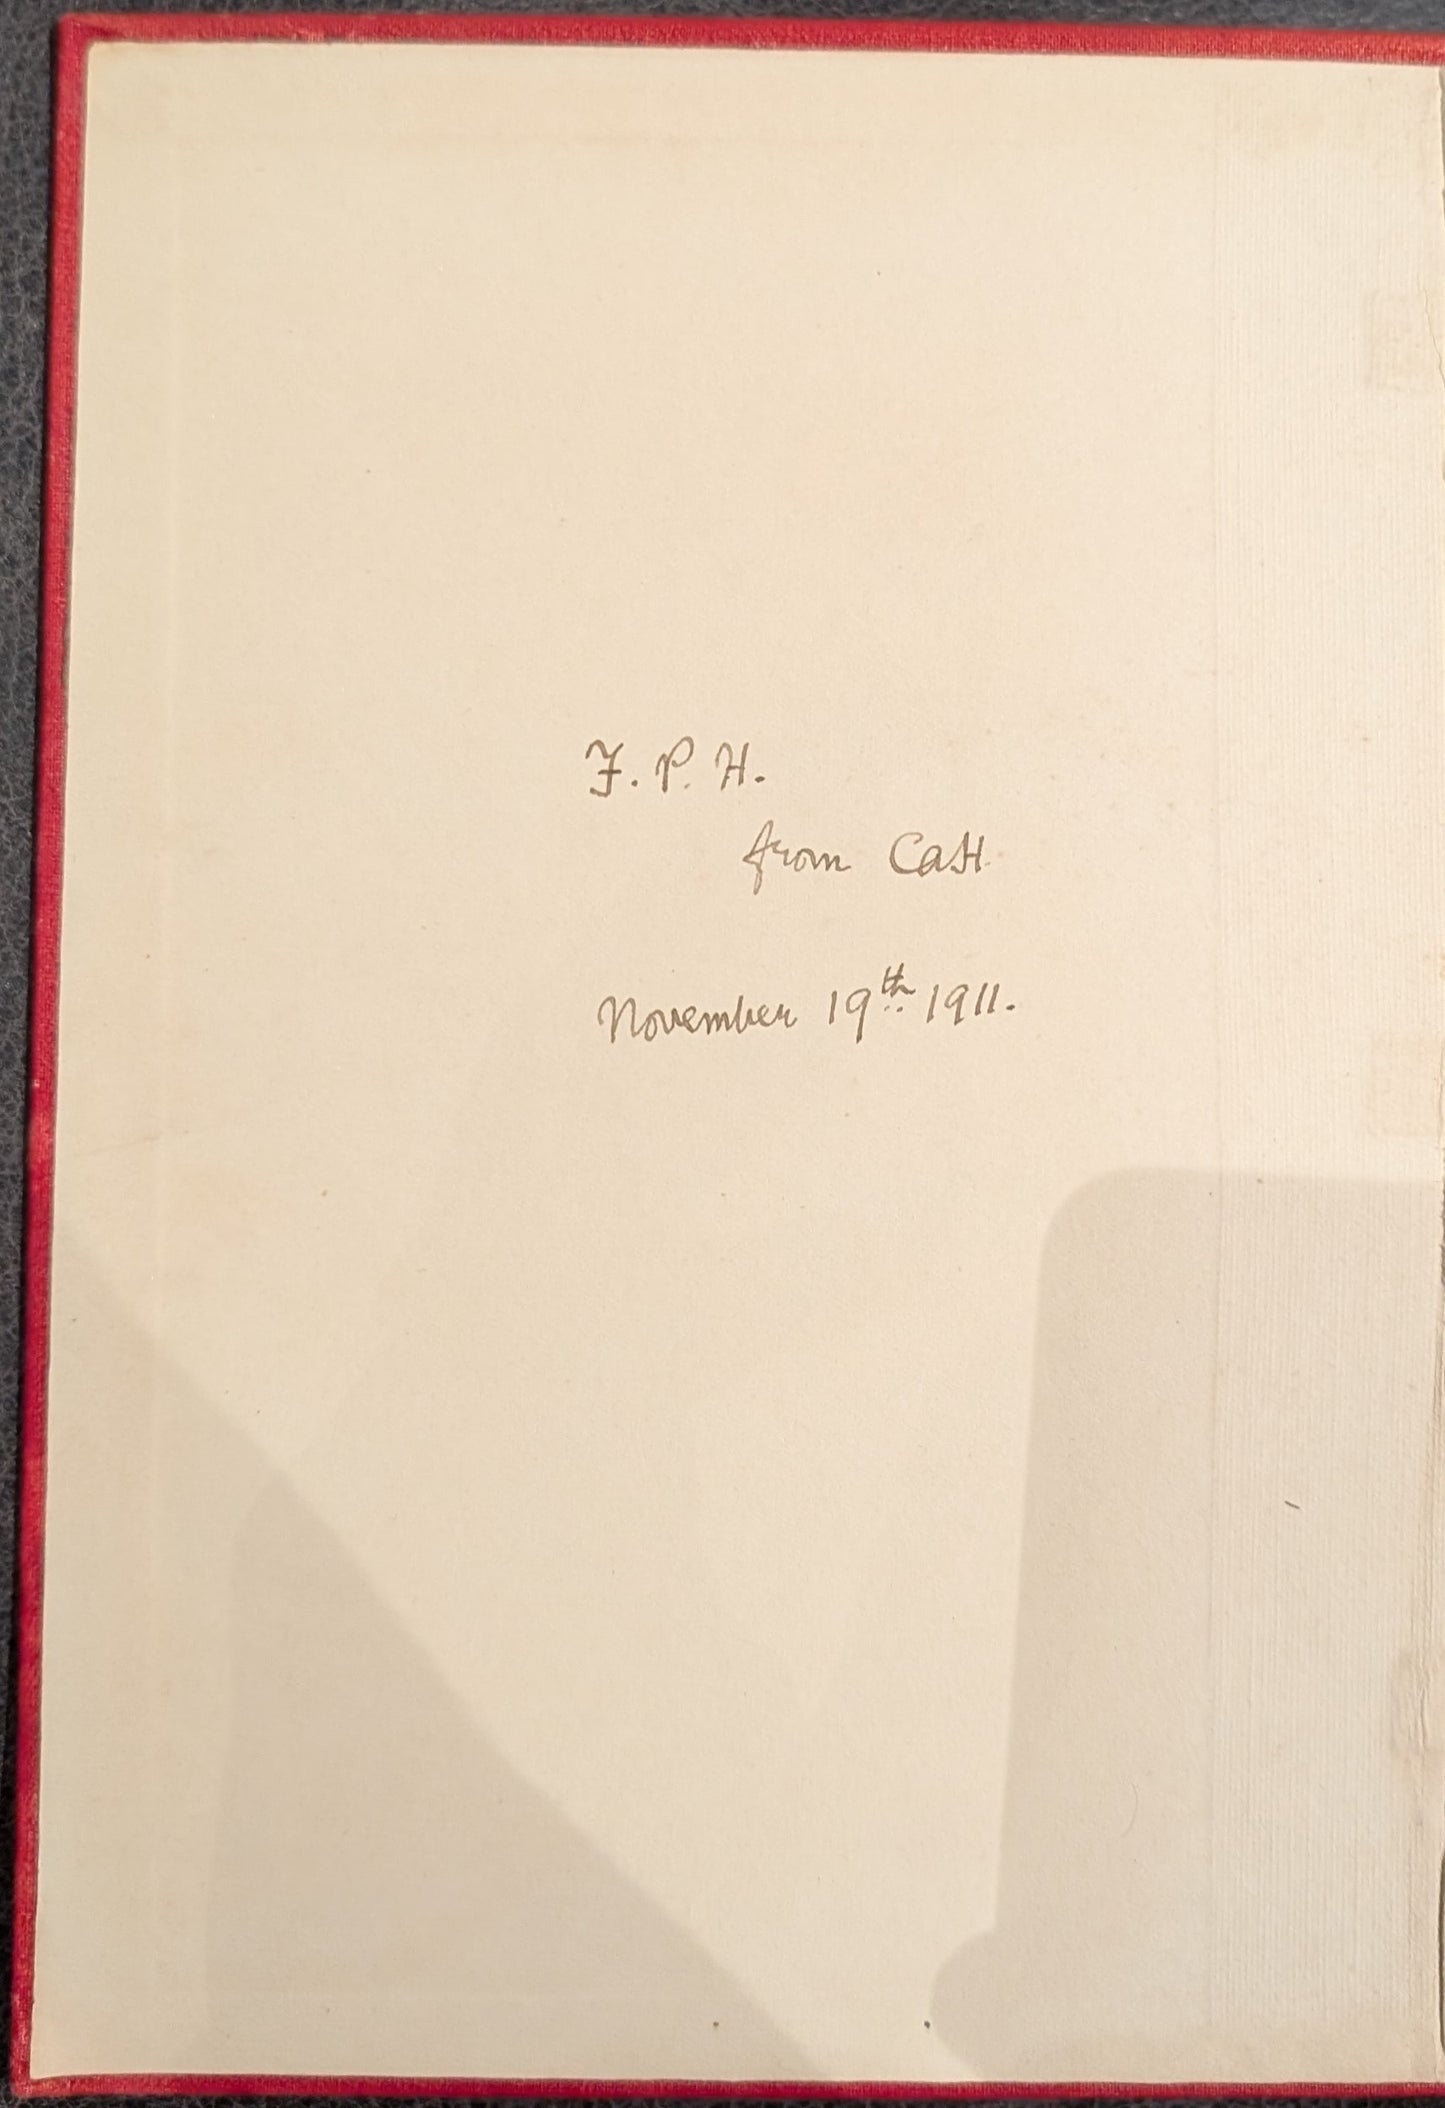 F. P. H.
from CASH
November 19th 1911.